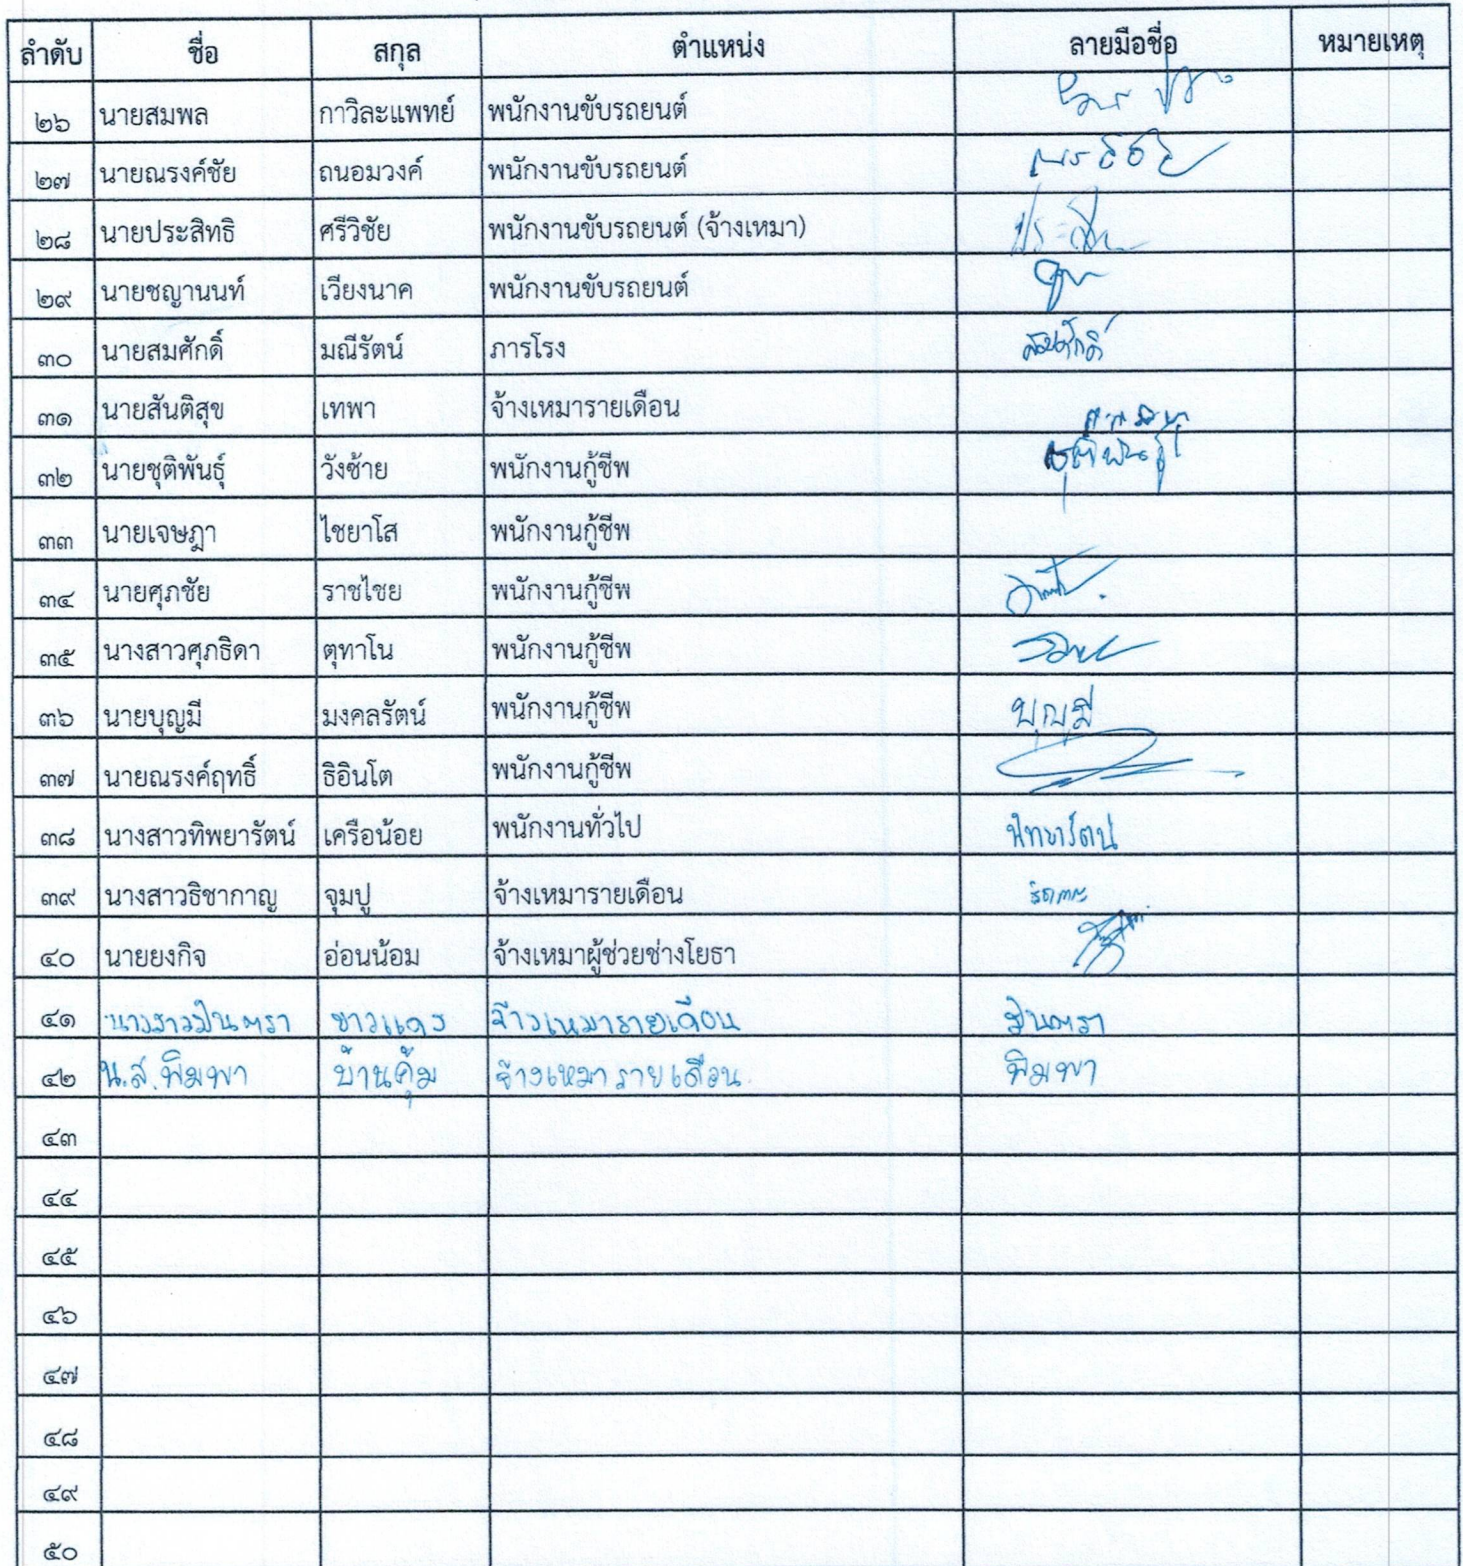 ลำดับ ชื่อ สกุล ตำแหน่ง ลายมือชื่อ หมายเหตุ
๒๖ นายสมพล กาวิละแพทย์ พนักงานขับรถยนต์
๒๗ นายณรงค์ชัย ถนอมวงค์ พนักงานขับรถยนต์
๒๘ นายประสิทธิ ศรีวิชัย พนักงานขับรถยนต์ (จ้างเหมา)
๒๙ นายชญานนท์ เวียงนาค พนักงานขับรถยนต์
๓๐ นายสมศักดิ์ มณีรัตน์ ภารโรง สมศักดิ์
๓๑ นายสันติสุข เทพา จ้างเหมารายเดือน
๓๒ นายชุติพันธุ์ วังซ้าย พนักงานกู้ชีพ ชุติพันธุ์
๓๓ นายเจษฎา ไชยาโส พนักงานกู้ชีพ
๓๔ นายศุภชัย ราชไชย พนักงานกู้ชีพ
๓๕ นางสาวศุภธิดา ตุทาโน พนักงานกู้ชีพ
๓๖ นายบุญมี มงคลรัตน์ พนักงานกู้ชีพ บุญมี
๓๗ นายณรงค์ฤทธิ์ ธิอินโต พนักงานกู้ชีพ
๓๘ นางสาวทิพยารัตน์ เครือน้อย พนักงานทั่วไป ทิพยารัตน์
๓๙ นางสาวธิชากาญ จุมปู จ้างเหมารายเดือน
๔๐ นายยงกิจ อ่อนน้อม จ้างเหมาผู้ช่วยช่างโยธา
๔๑ นางสาวปินตรา ขาวแดง จ้างเหมารายเดือน ปินตรา
๔๒ น.ส.พิมพา บ้านคุ้ม จ้างเหมารายเดือน พิมพา
๔๓
๔๔
๔๕
๔๖
๔๗
๔๘
๔๙
๕๐